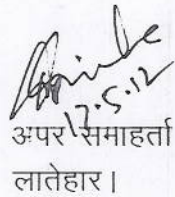 17.5.12
अपर समाहर्ता
लातेहार।